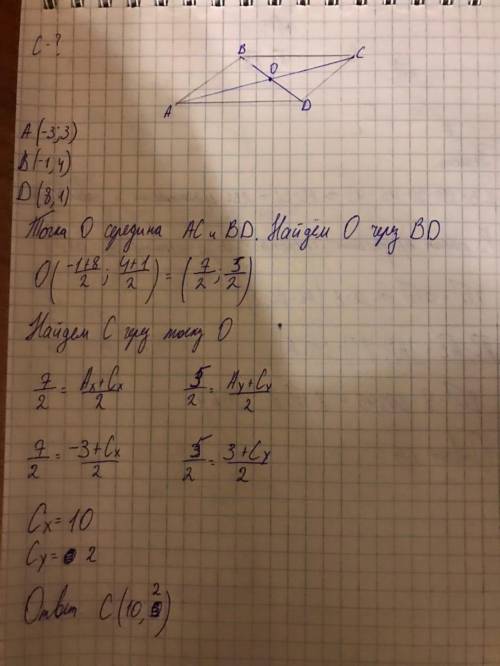 C-?
B
C
O
A
D
A(-3;3)
B(-1,4)
D(8,1)
Точка O середина AC и BD. Найдем O через BD
O(\frac{-1+8}{2}; \frac{4+1}{2}) = (\frac{7}{2}; \frac{5}{2})
Найдем C через точку O
\frac{7}{2} = \frac{Ax+Cx}{2} \frac{5}{2} = \frac{Ay+Cy}{2}
\frac{7}{2} = \frac{-3+Cx}{2} \frac{5}{2} = \frac{3+Cy}{2}
Cx=10
Cy= 2
Ответ C(10,2)